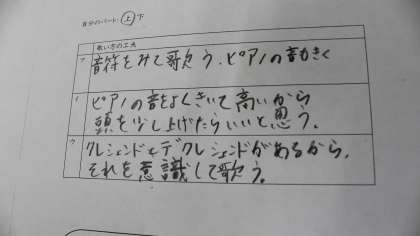 自分のパート：上 下
歌い方の工夫
ア
音符をみて歌う、ピアノの音もきく
イ
ピアノの音をよくきいて高いから
頭を少し上げたらいいと思う。
ウ
クレシェンドとデクレシェンドがあるから、
それを意識して歌う。